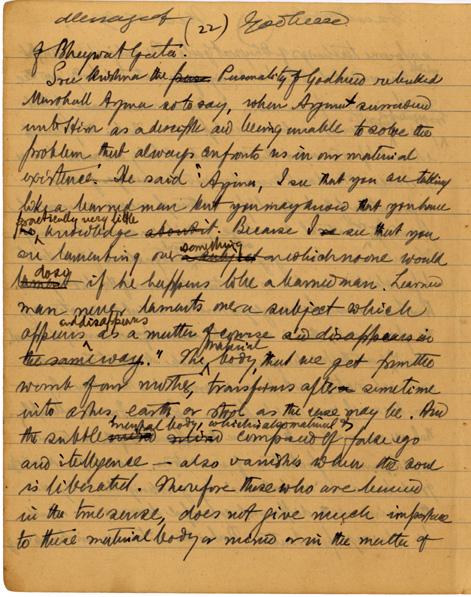 Message of (22) Godhead
of Bhagwat Geeta.
Sree Krishna the Personality of Godhead rebuked
Marshall Arjuna so to say, when Arjuna surrendered
unto Him as a disciple and being unable to solve the
problem that always confronts us in our material
existence. He said "Arjuna, I see that you are talking
like a learned man but you may know that you have
practically very little
knowledge about it. Because I see that you
something
are lamenting over a subject on which no one would
do so
lament if he happens to be a learned man. Learned
man never laments over a subject which
and disappears
appears as a matter of course and disappears in
material
the same way." The body, that we get from the
womb of our mother, transforms after sometime
into ashes, earth, or stool as the case may be. And
mental body, which is also material &
the subtle mind composed of false ego
and intelligence — also vanishes when the soul
is liberated. Therefore those who are learned
in the true sense, does not give much importance
to these material body or mind or in the matter of